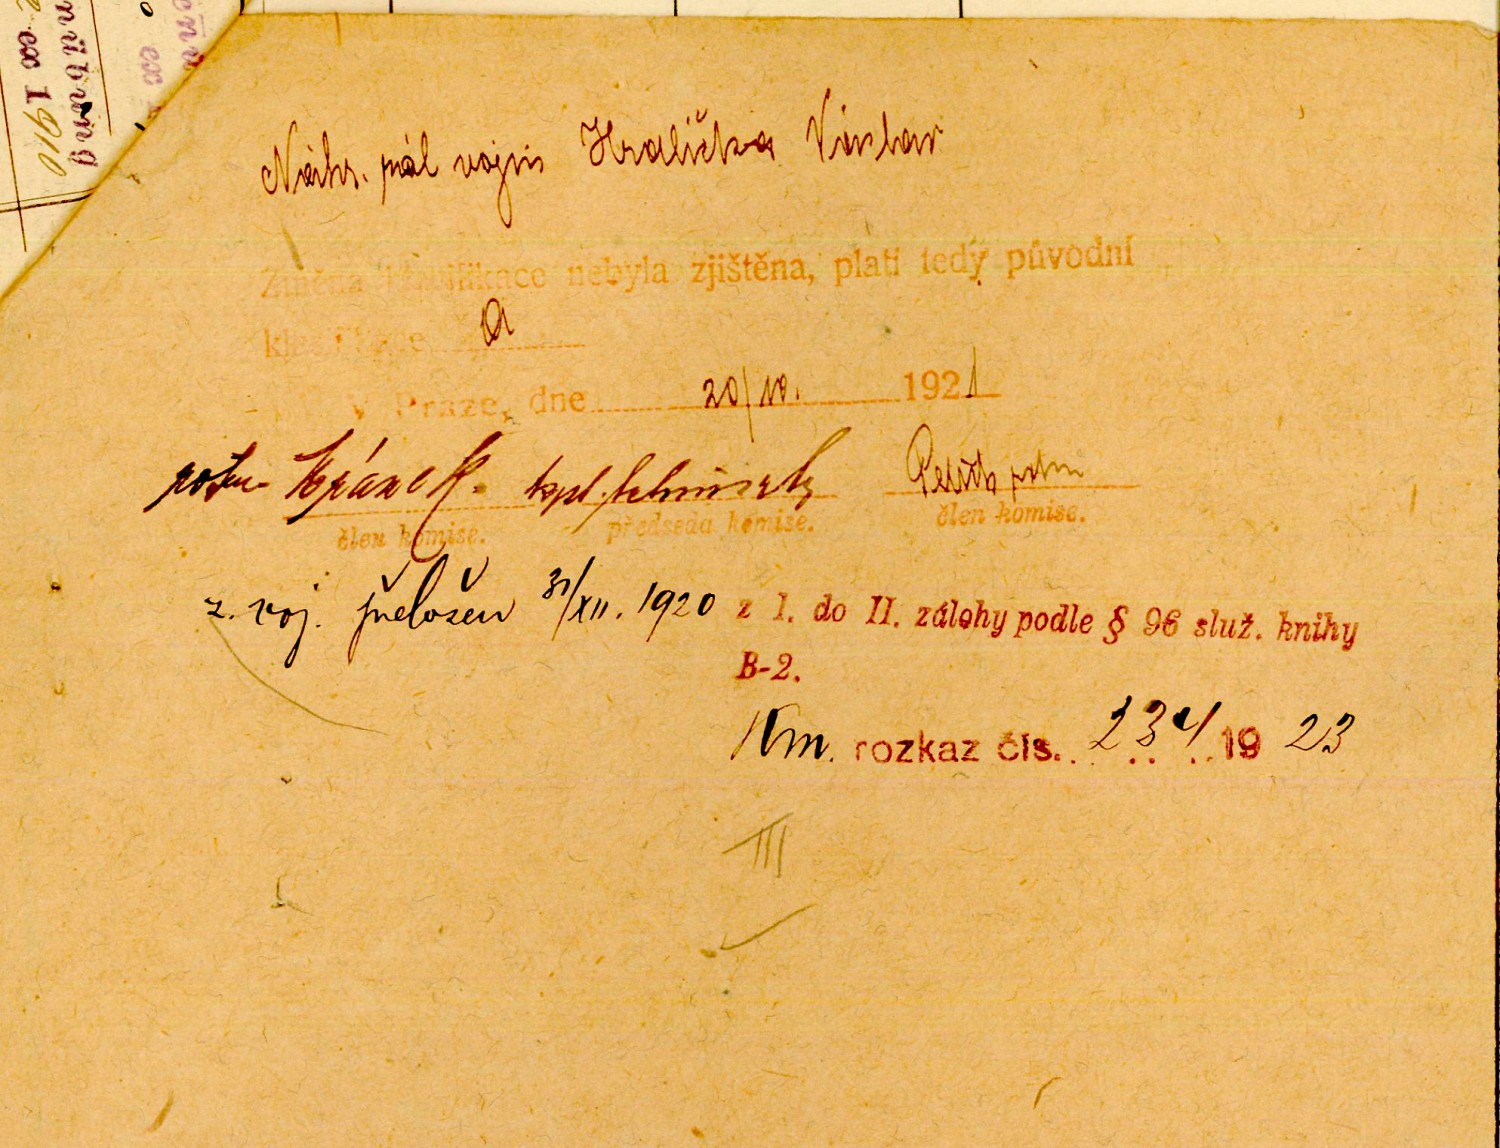 Náhr. pál vojín Hradička Václav
Změna klasifikace nebyla zjištěna, platí tedy původní
klasifikace a
V Praze, dne 20/10. 1921
kpt.
člen komise. předseda komise. člen komise.
z. voj. přeložen 31/XII. 1920 z I. do II. zálohy podle § 96 služ. knihy
B-2.
Km. rozkaz čís. 234 19 23
III
ex 1910